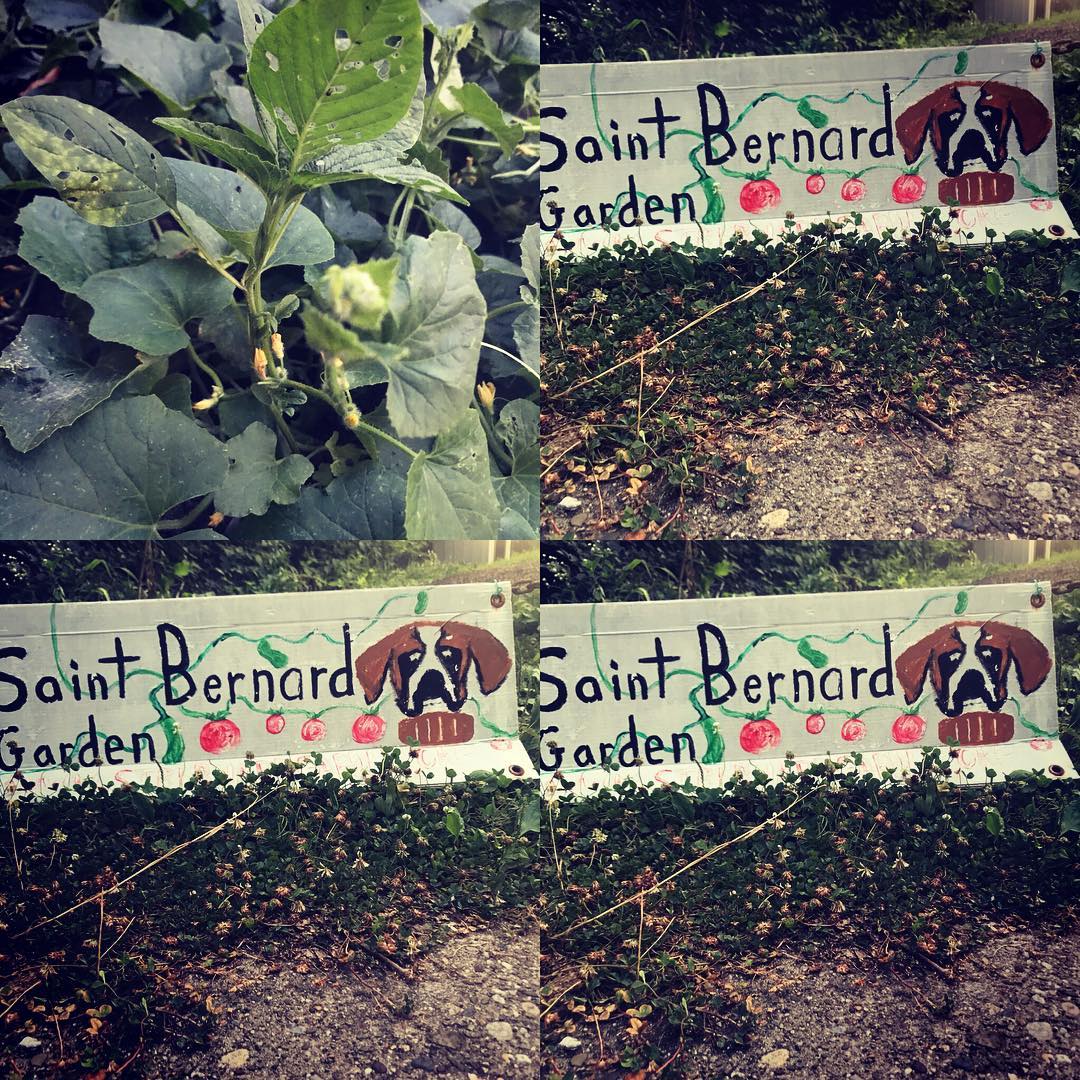 Saint Bernard
Garden
Saint Bernard
Garden
Saint Bernard
Garden